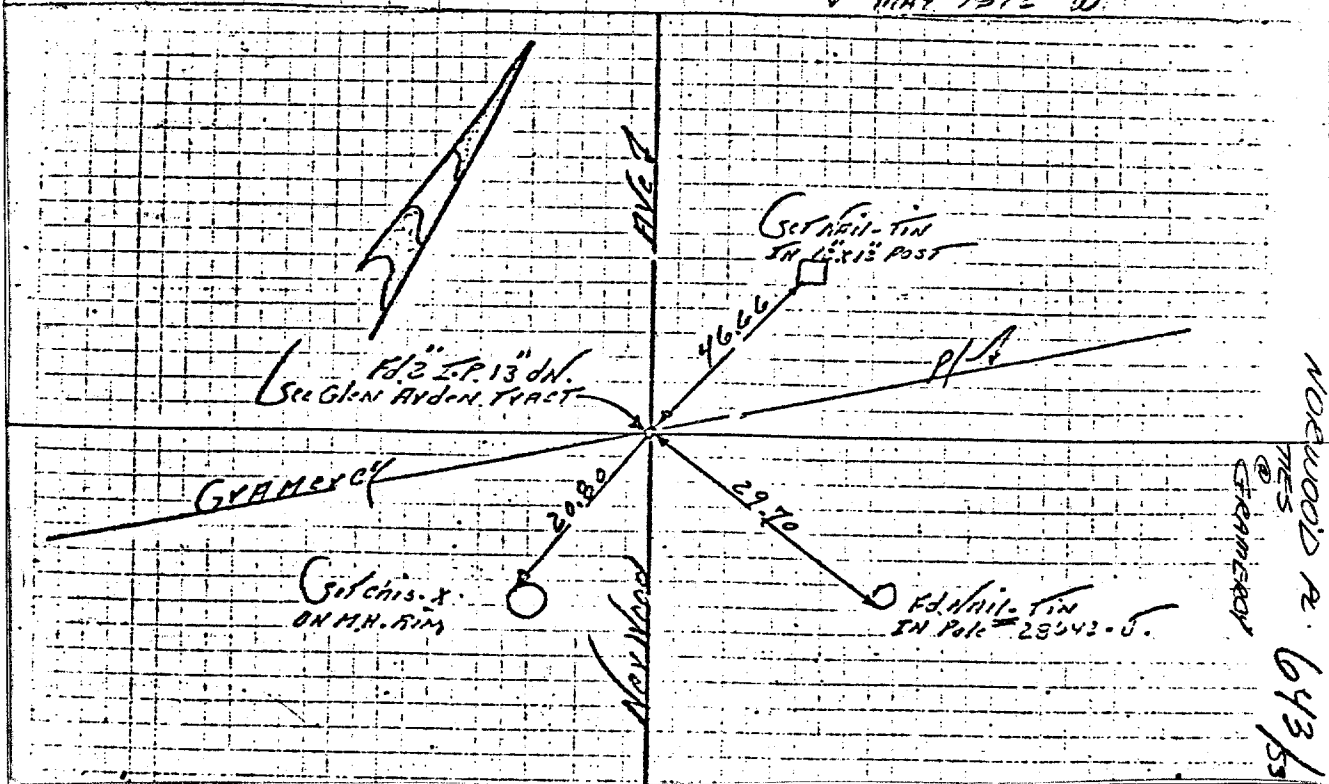 MAY 1972
AVE
Set Nail-Tin
IN POST
46.66
Pl
Fd. 2" I.P. 13" dn.
See Glen Arden Tract
Gramercy
20.80
29.70
Set chis. X
ON M.H. Rim
Norwood
Fd. Nail-Tin
IN Pole # 28643-J.
NORWOOD
TIES
@
GRAMERCY
643/53